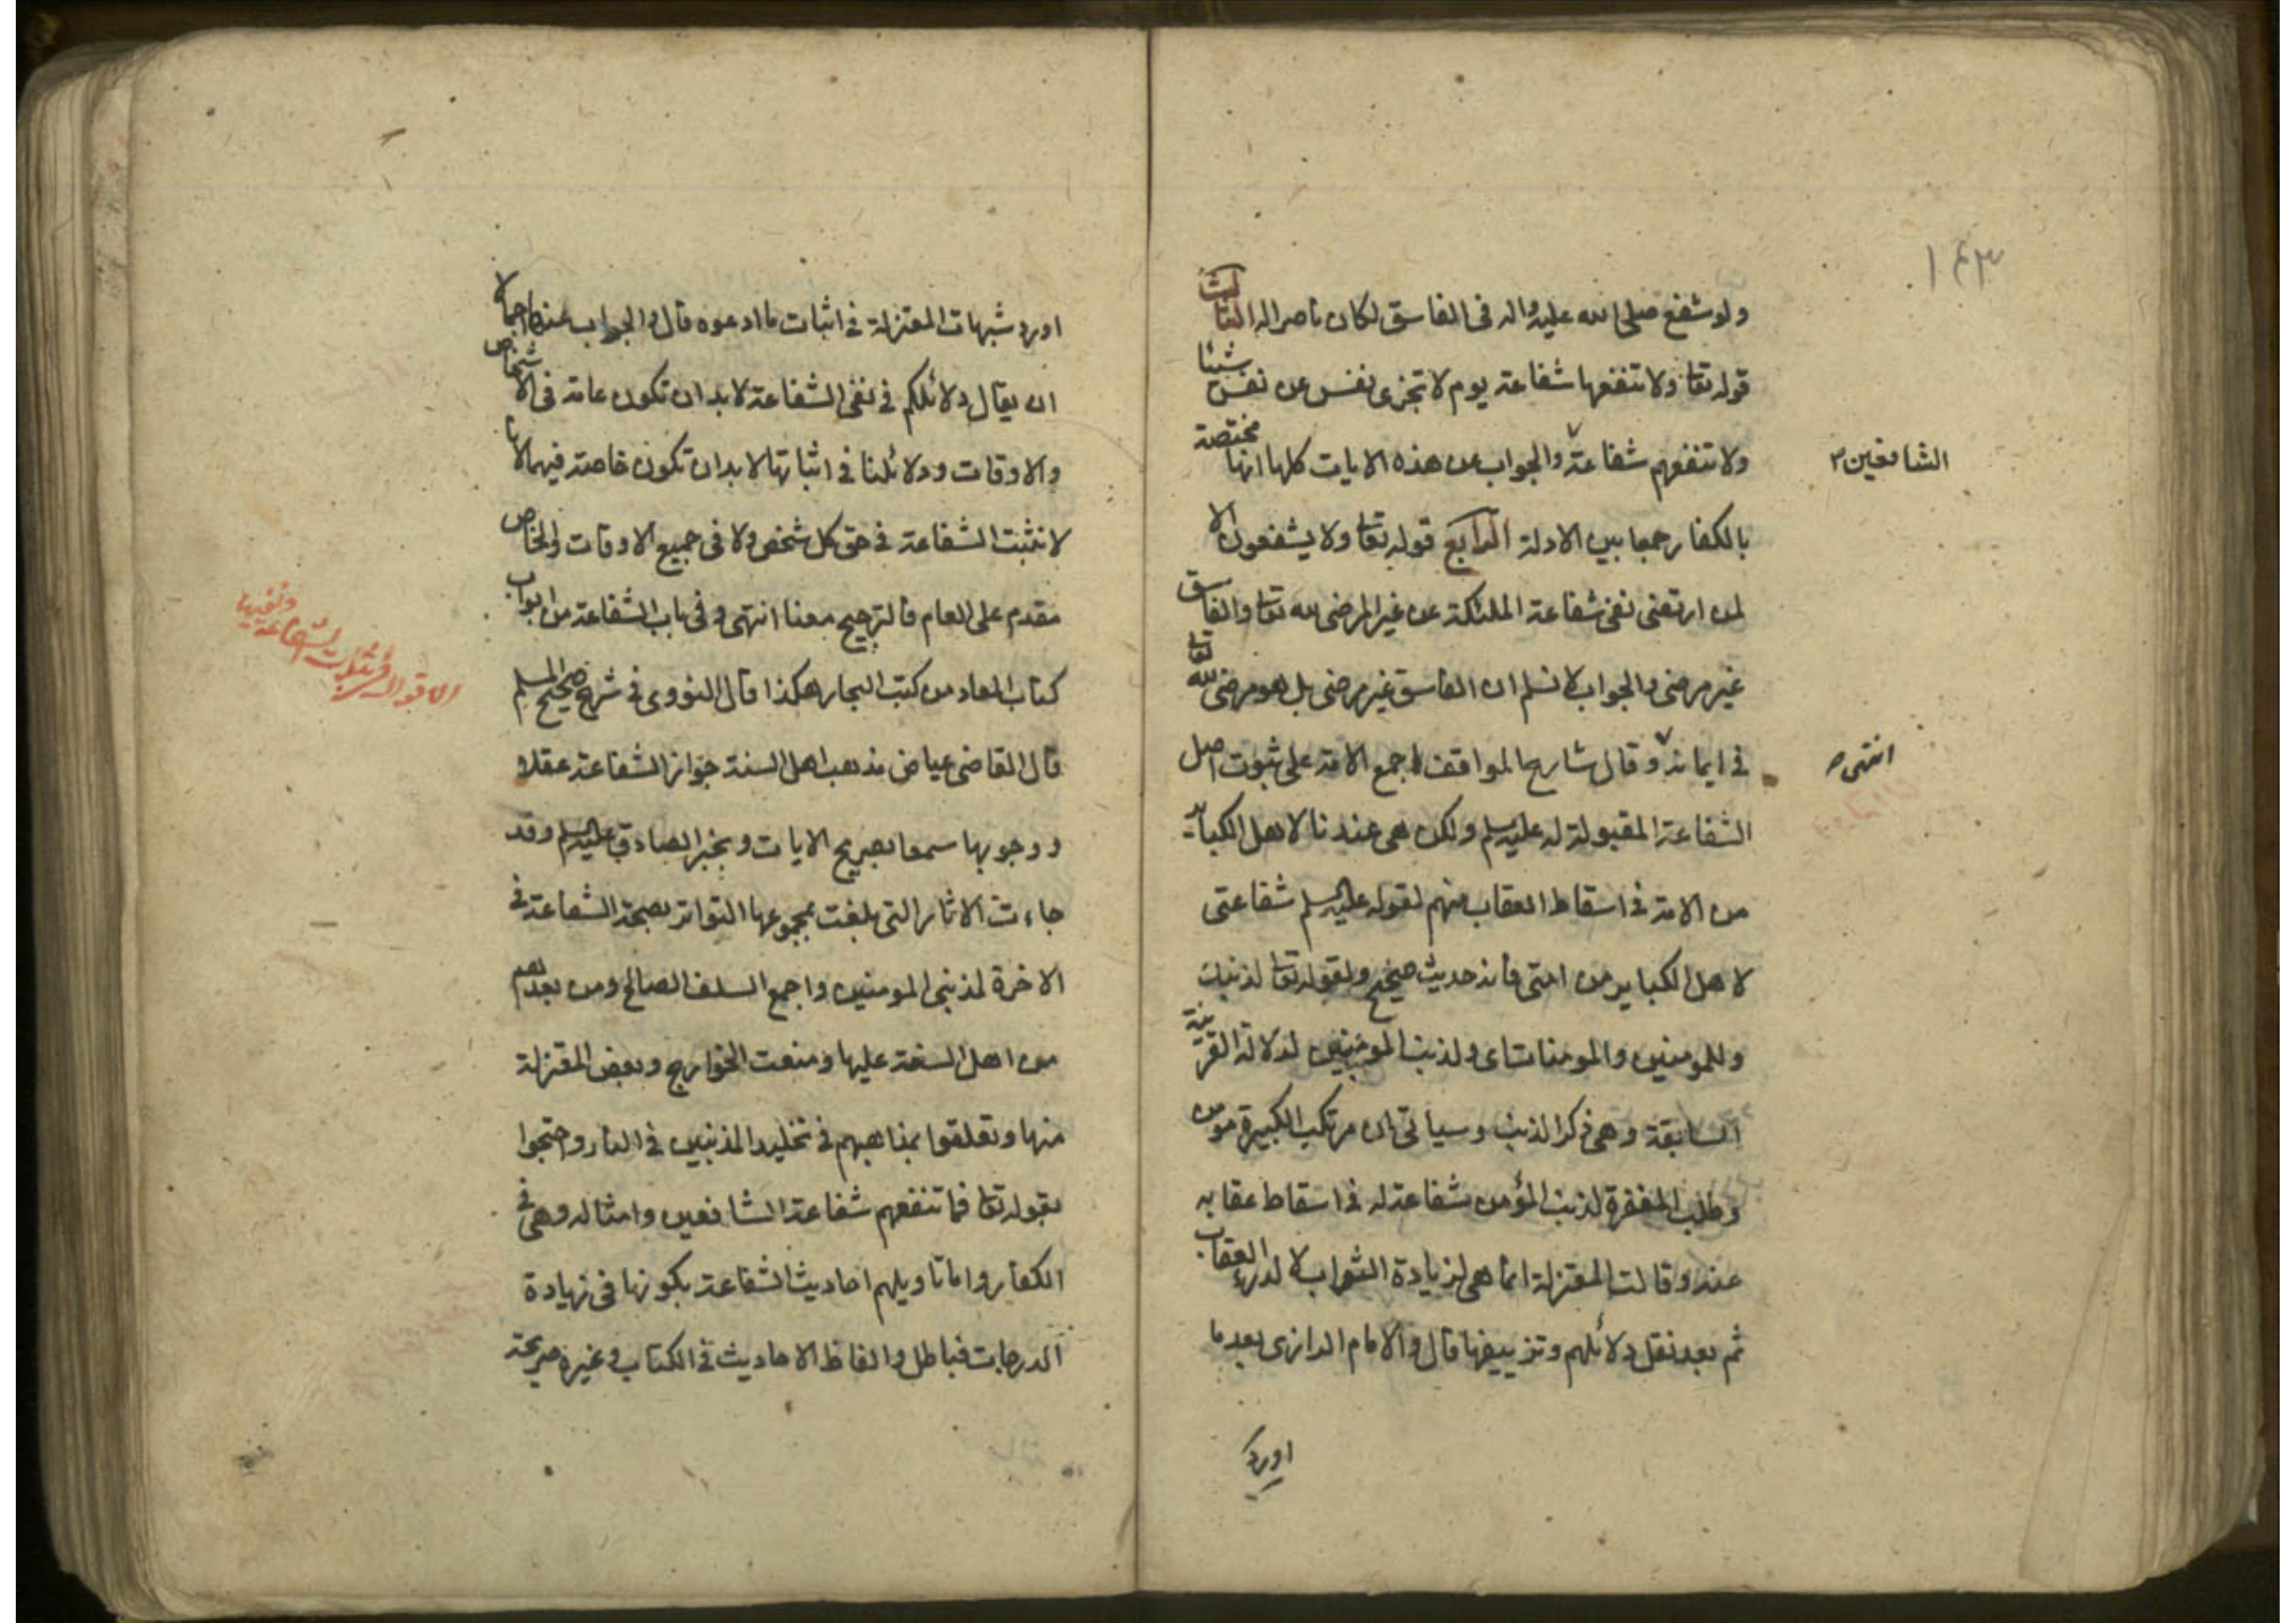 ١٤٣
ولو شفع صلى الله عليه واله فى الفاسق لكان ناصرا له الثالث
قوله تعا ولا تنفعها شفاعة يوم لا تجزى نفس عن نفس شيئا
ولا تنفعهم شفاعة والجواب عن هذه الايات كلها انها مختصة
الشافعين
بالكفار جمعا بين الادلة الرابع قوله تعا ولا يشفعون الا
لمن ارتضى نفى شفاعة الملئكة عن غير المرضى لله تعا والفاسق
غير مرضى والجواب لا نسلم ان الفاسق غير مرضى بل هو مرضى لله تعا
فى ايمانه وقال شارح المواقف اجمع الامة على ثبوت اصل
انتهى
الشفاعة المقبولة له عليه السلم ولكن هى عندنا لاهل الكبائر
من الامة فى اسقاط العقاب منهم لقوله عليه السلم شفاعتى
لاهل الكباير من امتى فانه حديث صحيح ولقوله تعا لذنبك
وللمومنين والمومنات اى ولذنب المومنين لدلالة القرينة
السابقة وهى ذكر الذنب وسياتى ان مرتكب الكبيرة مومن
وطلب المغفرة لذنب المؤمن شفاعة له فى اسقاط عقابه
عنه وقالت المعتزلة انما هى لزيادة الثواب لا لدرء العقاب
ثم بعد نقل دلائلهم وتزييفها قال والامام الرازى بعد ما
اورد
اورد شبهات المعتزلة فى اثبات ما ادعوه قال والجواب عنها اجمالا
ان يقال دلائلكم فى نفى الشفاعة لا بد ان تكون عامة فى الاشخاص
والاوقات ودلائلنا فى اثباتها لا بد ان تكون خاصة فيهما لانا
لا نثبت الشفاعة فى حق كل شخص ولا فى جميع الاوقات والخاص
مقدم على العام فالترجيح معنا انتهى وفى باب الشفاعة من ابواب
الاقوال فى اثبات الشفاعة ونفيها
كتاب المعاد من كتب البحار هكذا قال النووى فى شرح صحيح المسلم
قال القاضى عياض مذهب اهل السنة جواز الشفاعة عقلا
ووجوبها سمعا بصريح الايات وبخبر الصادق عليه السلم وقد
جاءت الاثار التى بلغت بمجموعها التواتر بصحة الشفاعة فى
الاخرة لمذنبى المومنين واجمع السلف الصالح ومن بعدهم
من اهل السنة عليها ومنعت الخوارج وبعض المعتزلة
منها وتعلقوا بمذاهبهم فى تخليد المذنبين فى النار واحتجوا
بقوله تعا فما تنفعهم شفاعة الشافعين وامثاله وهى فى
الكفار واما تاويلهم احاديث الشفاعة بكونها فى زيادة
الدرجات فباطل والفاظ الاحاديث فى الكتاب وغيره صريحة